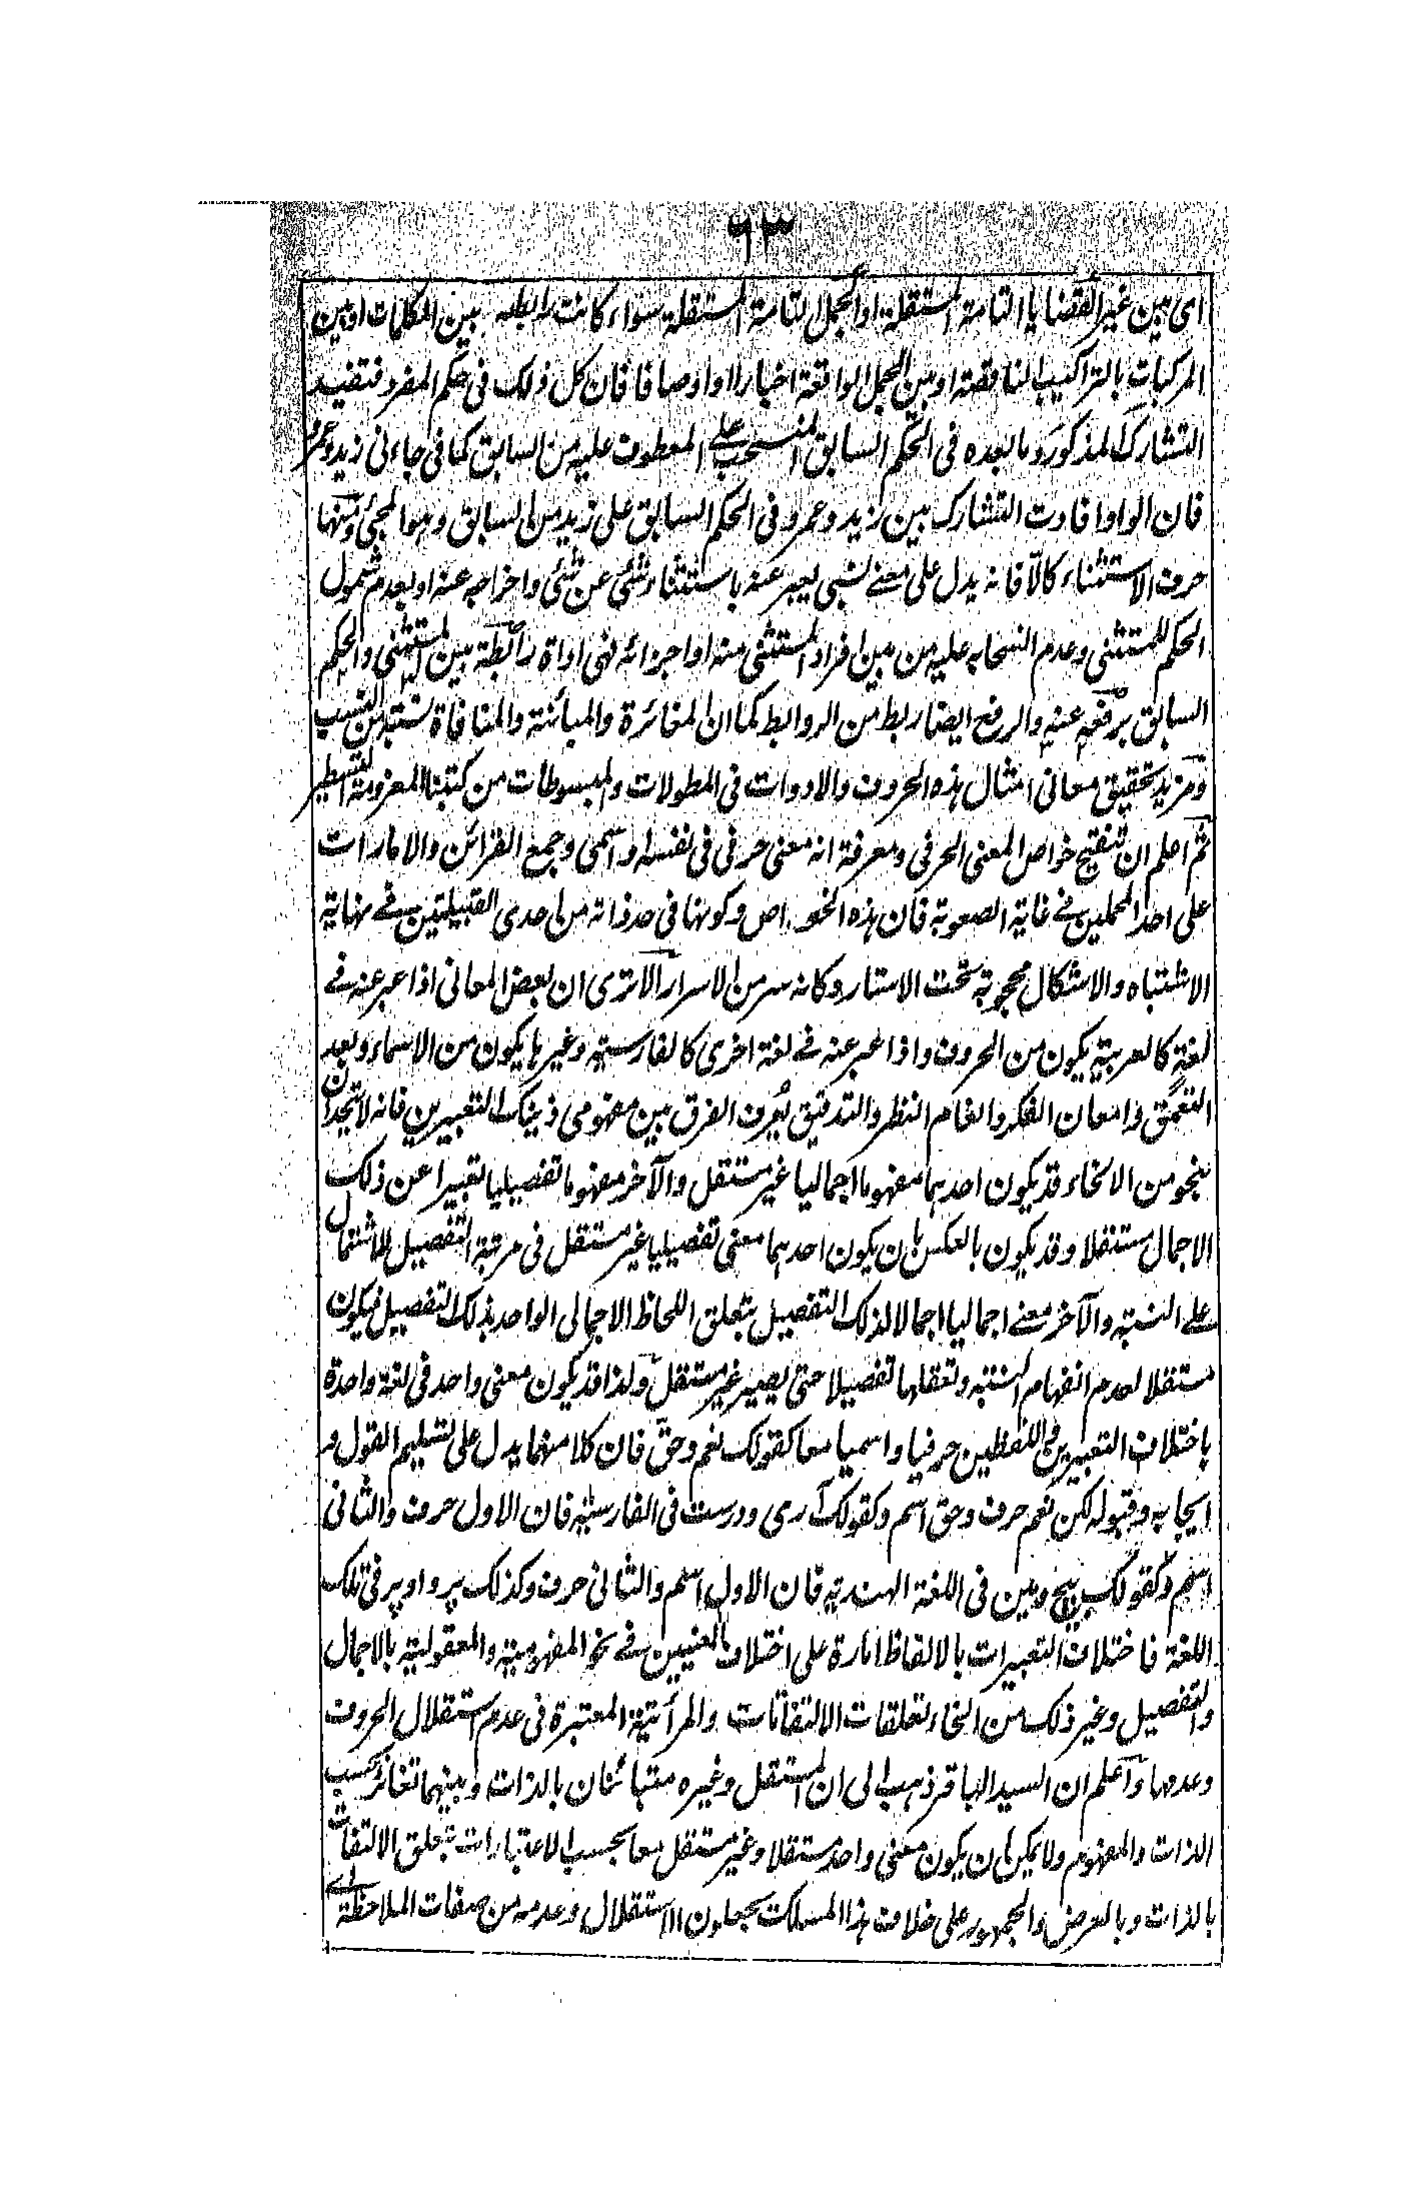 ٦٣
اى بين غير القضايا التامة المستقلة او الجمل التامة المستقلة سواء كانت رابطة بين الكلمات او بين
المركبات بالتراكيب الناقصة او بين الجمل الواقعة اخبارا او اوصافا فان كل ذلك فى حكم المفرد فتفيد
التشارك المذكور وما بعده فى الحكم السابق المنسحب على المعطوف عليه من السابق كما فى جاءنى زيد وعمرو
فان الواو افادت التشارك بين زيد وعمرو فى الحكم السابق على زيد من السابق وهو المجئ ومنها
حرف الاستثناء كالا فانه يدل على معنے نسبى يعبر عنه باستثناء شئ عن شئ واخراجه عنه او بعدم شمول
الحكم للمستثنى وعدم انسحابه عليه من بين افراد المستثنى منه او اجزائه فهى اداة رابطة بين المستثنى والحكم
السابق برفعه عنه والرفع ايضا ربط من الروابط كما ان المغائرة والمبائنة والمنافاة نسبة من النسب
ومزيد تحقيق معانى امثال هذه الحروف والادوات فى المطولات والمبسوطات من كتبنا المعزومة التسطير
ثم اعلم ان تنقيح خواص المعنى الحرفى ومعرفة انه معنى حرفى فى نفسه او اسمى وجمع القرائن والامارات
على احد المحملين فے غاية الصعوبة فان هذه الخواص وكونها فى حد ذاته من احدى القبيلتين فے نهاية
الاشتباه والاشكال محجوبة تحت الاستار وكانه سر من الاسرار الا ترى ان بعض المعانى اذا عبر عنه فے
لغة كالعربية يكون من الحروف واذا عبر عنه فے لغة اخرى كالفارسية وغيرها يكون من الاسماء وبعد
التعمق وامعان الفكر وانعام النظر والتدقيق يعرف الفرق بين مفهومى ذينك التعبيرين فانه لا يتحدان
بنحو من الانحاء قد يكون احدهما مفهوما اجماليا غير مستقل والآخر مفهوما تفصيليا تعبيرا عن ذلك
الاجمال مستقلا وقد يكون بالعكس بان يكون احدهما معنى تفصيليا غير مستقل فى مرتبة التفصيل لاشتمال
علے النسبة والآخر معنے اجماليا اجمالا لذلك التفصيل بتعلق اللحاظ الاجمالى الواحد بذلك التفصيل فيكون
مستقلا لعدم انفهام النسبة وتعقلها تفصيلا حتى يصير غير مستقل ولذا قد يكون معنى واحد فى لغة واحدة
باختلاف التعبيرين واللفظين حرفيا واسميا معا كقولك نعم وحق فان كلا منهما يدل على تسليم القول و
ايجابه وقبوله لكن نعم حرف وحق اسم وكقولك آرى ودرست فى الفارسية فان الاول حرف والثانى
اسم وكقولك بيچ ومين فى اللغة الهندية فان الاول اسم والثانى حرف وكذلك پر واوپر فى تلك
اللغة فاختلاف التعبيرات بالالفاظ امارة على اختلاف المعنيين فے نحو المفهومية والمعقولية بالاجمال
والتفصيل وغير ذلك من انحاء تعلقات الالتفاتات والمرأتية المعتبرة فى عدم استقلال الحروف
وعدمها واعلم ان السيد الباقر ذهب الى ان المستقل وغيره متبائنان بالذات وبينهما تغائر بحسب
الذات والمفهوم ولا يمكن ان يكون معنى واحد مستقلا وغير مستقل معا بحسب الاعتبارات بتعلق الالتفات
بالذات وبالعرض والجمهور على خلاف هذا المسلك يجعلون الاستقلال وعدمه من صفات الملاحظة اے